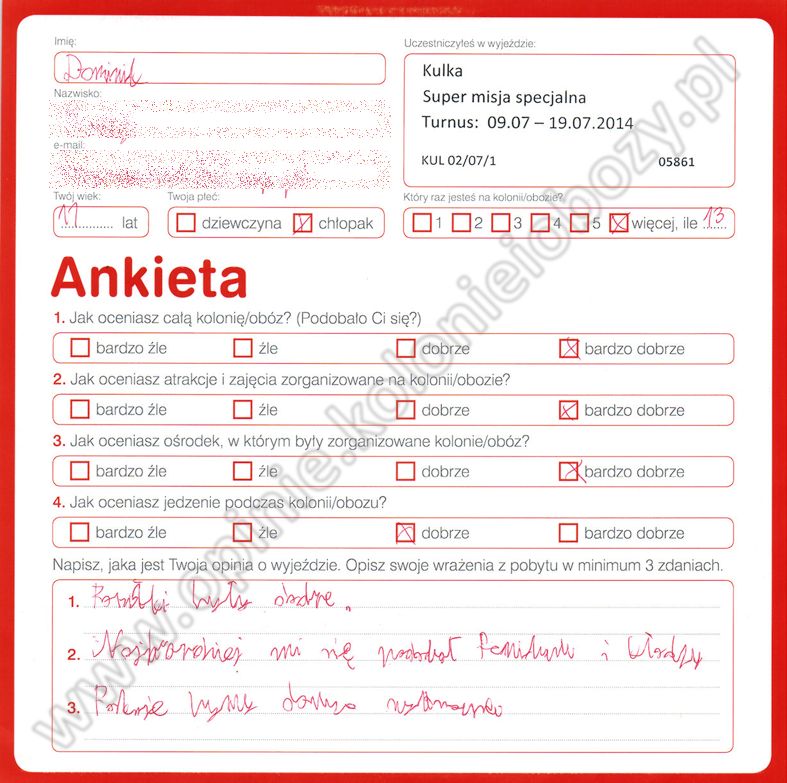 Imię:
Dominik
Nazwisko:
e-mail:
Twój wiek:
11 lat
Twoja płeć:
dziewczyna chłopak
Uczestniczyłeś w wyjeździe:
Kulka
Super misja specjalna
Turnus: 09.07 – 19.07.2014
KUL 02/07/1 05861
Który raz jesteś na kolonii/obozie?
1 2 3 4 5 więcej, ile 13
Ankieta
1. Jak oceniasz całą kolonię/obóz? (Podobało Ci się?)
bardzo źle źle dobrze bardzo dobrze
2. Jak oceniasz atrakcje i zajęcia zorganizowane na kolonii/obozie?
bardzo źle źle dobrze bardzo dobrze
3. Jak oceniasz ośrodek, w którym były zorganizowane kolonie/obóz?
bardzo źle źle dobrze bardzo dobrze
4. Jak oceniasz jedzenie podczas kolonii/obozu?
bardzo źle źle dobrze bardzo dobrze
Napisz, jaka jest Twoja opinia o wyjeździe. Opisz swoje wrażenia z pobytu w minimum 3 zdaniach.
1. były
2. mi się podobał i
3.
www.opinie.kolonieiobozy.pl